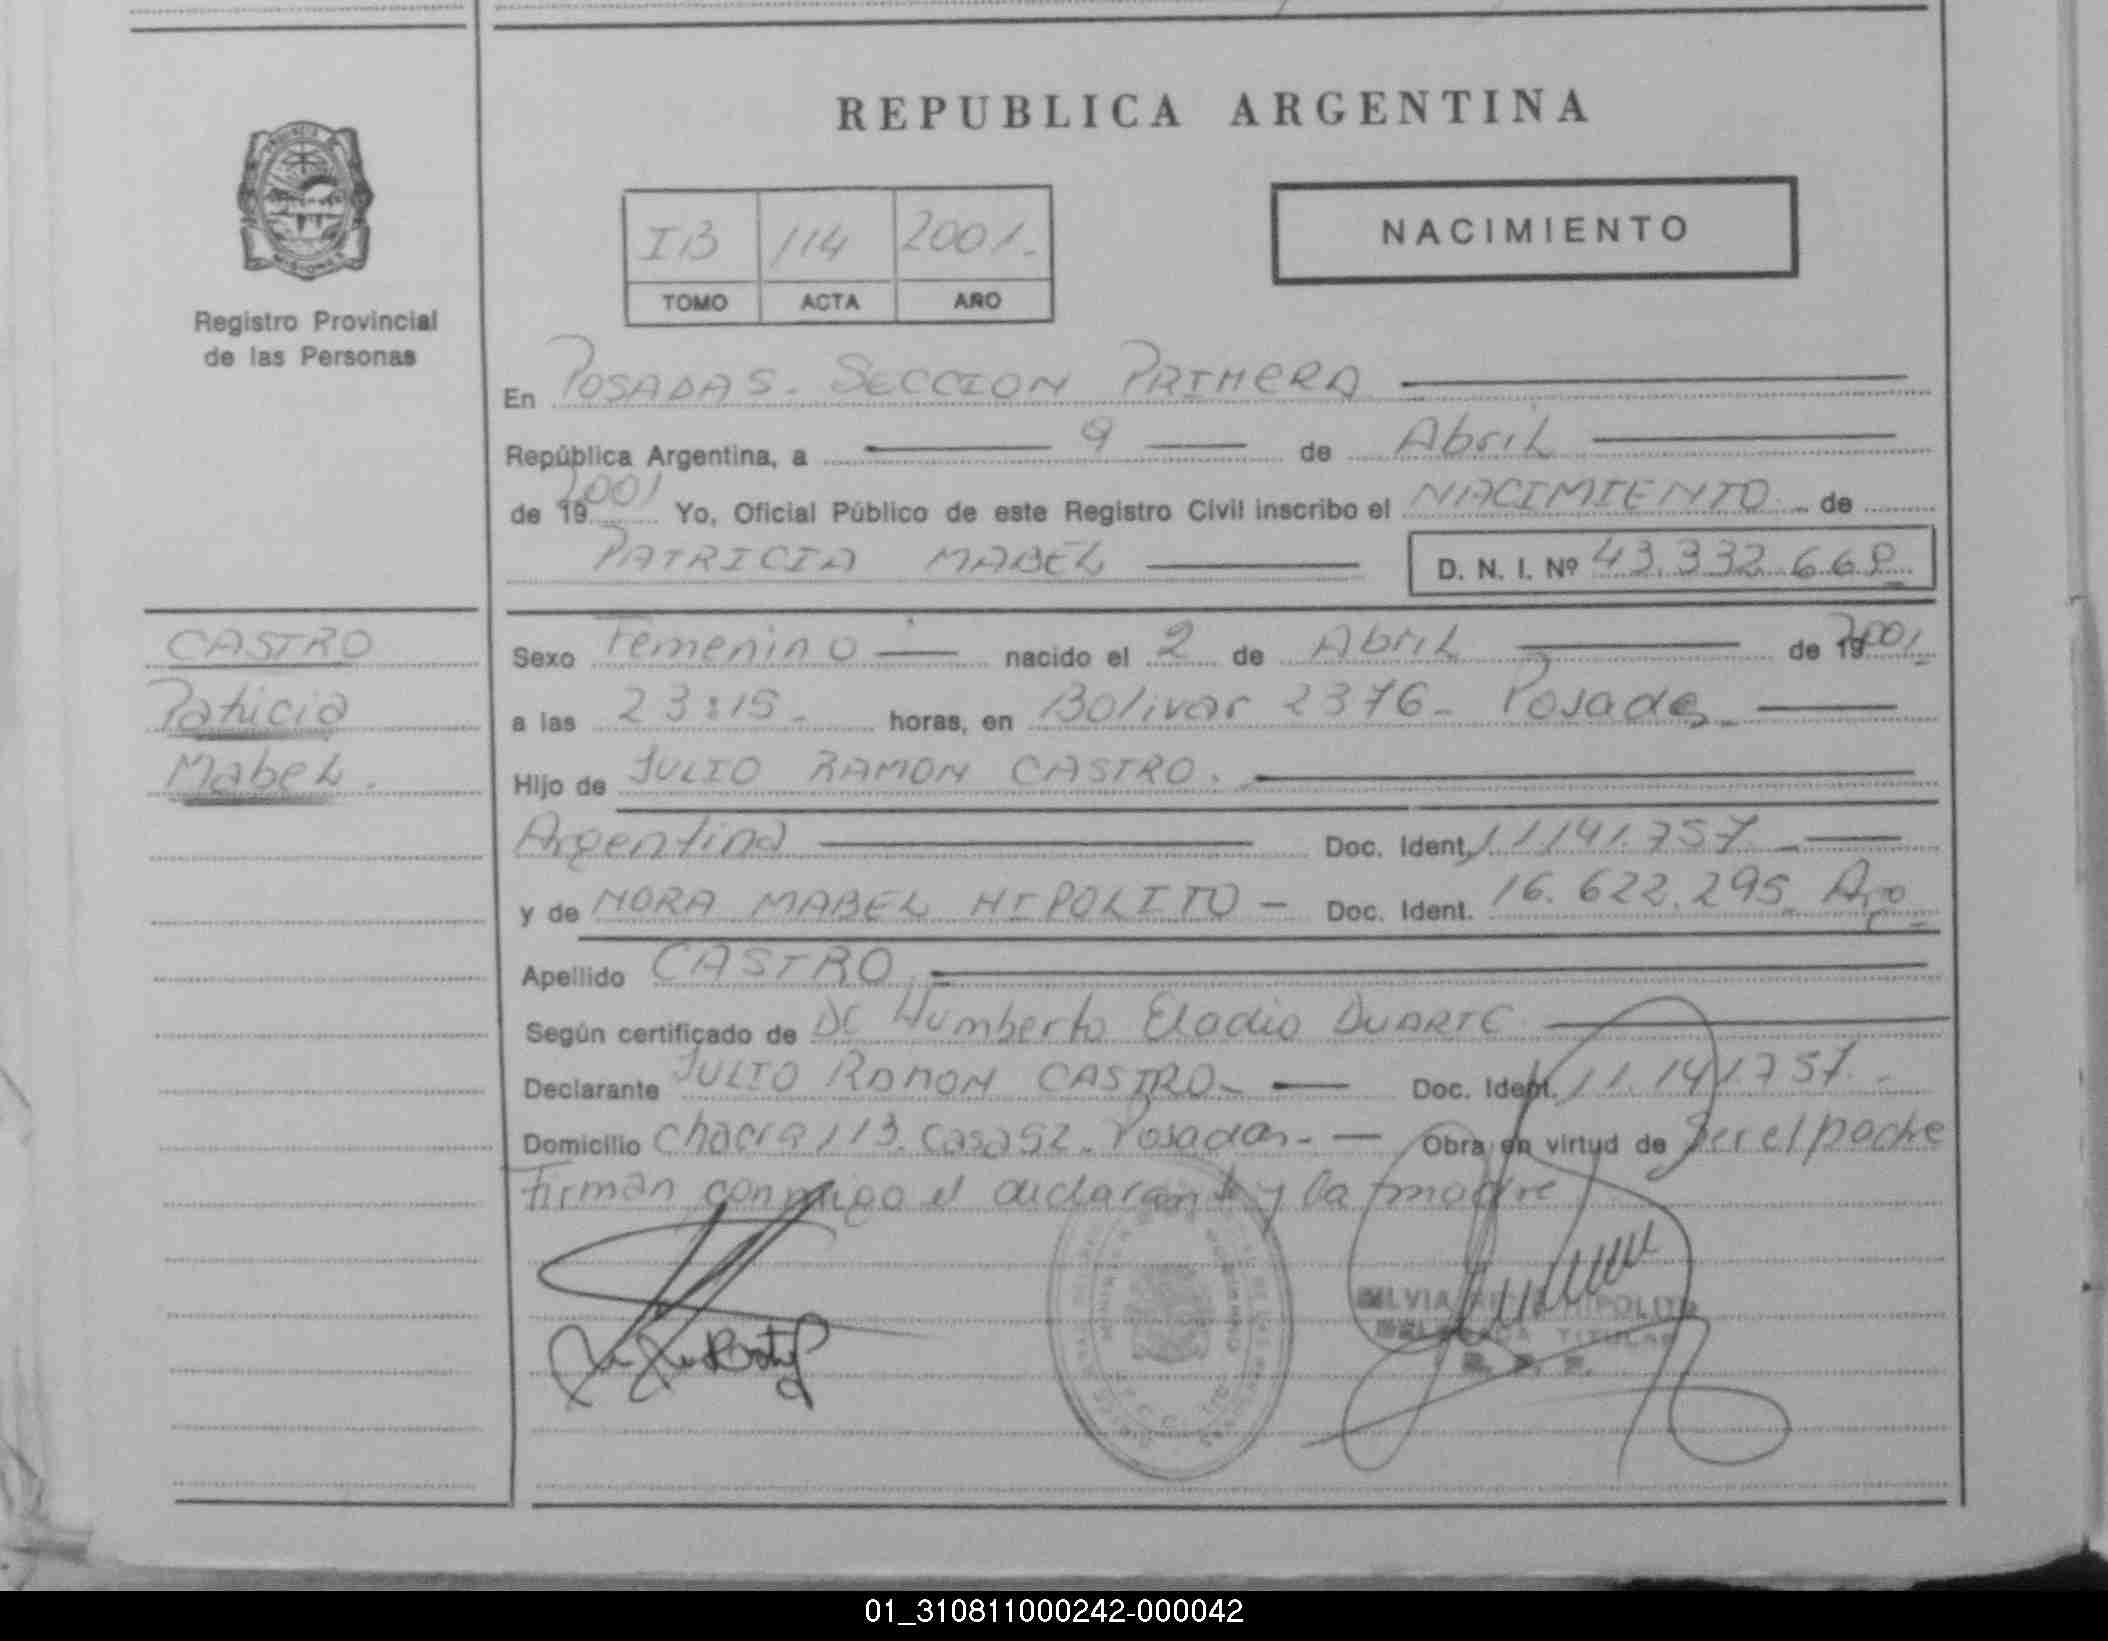 REPUBLICA ARGENTINA
IB 114 2001.-
TOMO ACTA AÑO
NACIMIENTO
MISIONES
Registro Provincial
de las Personas
En POSADAS - SECCION PRIMERA
República Argentina, a 9 de Abril
de 19 2001 Yo, Oficial Público de este Registro Civil inscribo el NACIMIENTO - de
PATRICIA MABEL D. N. I. Nº 43.332.668
CASTRO
Patricia
Mabel.
Sexo Femenino nacido el 2 de Abril de 19 2001.
a las 23:15 - horas, en Bolivar 2376 - Posadas -
Hijo de JULIO RAMON CASTRO.
Argentina Doc. Ident. 11.141.757 -
y de NORA MABEL HIPOLITO - Doc. Ident. 16.622.295
Apellido CASTRO
Según certificado de Dc Humberto Eladio DUARTE
Declarante JULIO RAMON CASTRO - Doc. Ident. 11.141.757 -
Domicilio Chacra 113. Casa 92 - Posadas - Obra en virtud de Ser el padre
Firman conmigo el declarante y la madre
HIPOLITO
TITULAR
01_310811000242-000042